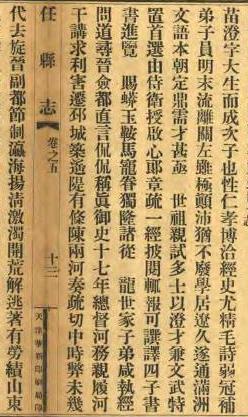 苗澄字大生而成次子也性仁孝博洽經史尤精毛詩弱冠補
弟子員明末流離關左雖極顛沛猶不廢學居遼久遂通滿洲
文語本朝定鼎需才甚亟　世祖親試多士以澄才兼文武特
置首選由侍衛授啟心郞章疏一經披閱輒報可譔譯四子書
書進覽　賜蟒玉鞍馬寵眷獨隆諸從　龍世家子弟咸執經
問道尋晉僉都直言侃侃稱眞御史十七年總督河務親履河
干講求利害遷邳城築遙隄有條陳兩河奏疏切中時弊未幾
任縣志
卷之五
十三
天津華新印刷局印
代去旋晉副都節制瀛海揚淸激濁開荒解逃著有勞績山東